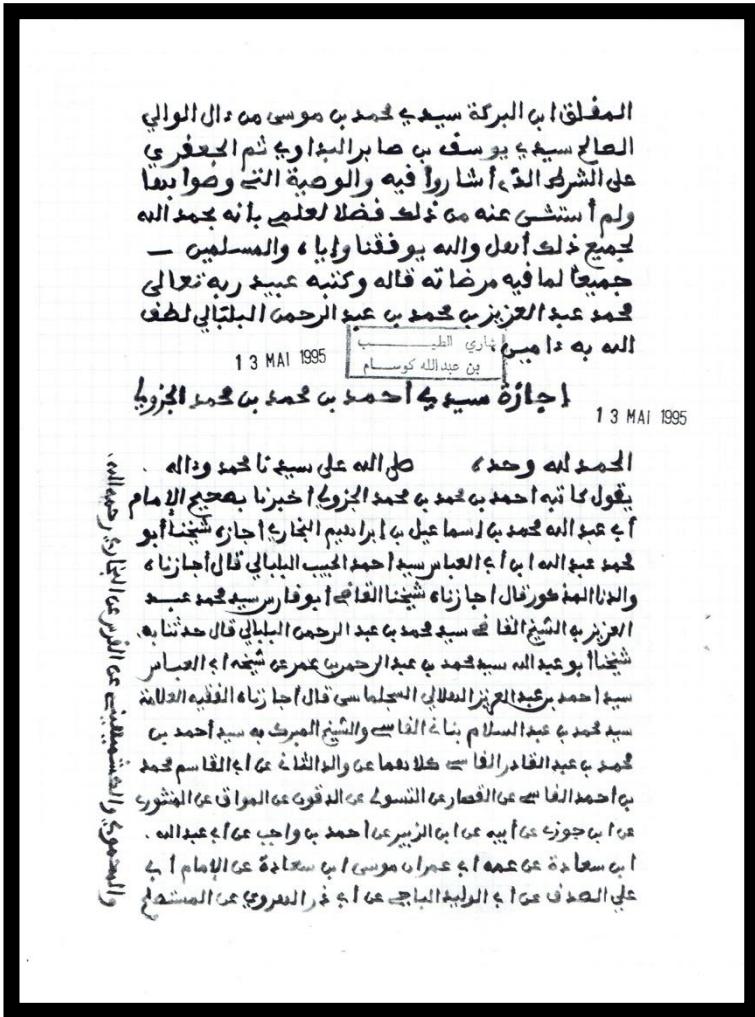 المفلق ابن البركة سيدي محمد بن موسى من ءال الوالي
الصالح سيدي يوسف بن صابر البداوي ثم الجعفري
على الشرط الذي أشاروا فيه والوصية التي وصوا بها
ولم أستثنى عنه من ذلك فضلا لعلمي بأنه بحمد الله
لجميع ذلك أهل والله يوفقنا وإياه والمسلمين –
جميعا لما فيه مرضاته قاله وكتبه عبيد ربه تعالى
محمد عبد العزيز بن محمد بن عبد الرحمن البلبالي لطف
الله به ءامين
شاري الطيب
بن عبدالله كوسام
13 MAI 1995
إجازة سيدي أحمد بن محمد بن محمد الجزولي
13 MAI 1995
الحمد لله وحده صلى الله على سيدنا محمد وءاله .
يقول كاتبه احمد بن محمد بن محمد الجزولي أخبرنا بصحيح الإمام
أبي عبد الله محمد بن إسماعيل بن إبراهيم البخاري إجازة شيخنا أبو
محمد عبد الله ابن أبي العباس سيد أحمد الحبيب البلبالي قال أجازناه
والدنا المذكور قال أجازناه شيخنا القاضي أبو فارس سيد محمد عبد
العزيز بن الشيخ القاضي سيد محمد بن عبد الرحمن البلبالي قال حدثنا به
شيخنا أبو عبد الله سيد محمد بن عبد الرحمن بن عمر عن شيخه أبي العباس
سيد احمد بن عبد العزيز الهلالي السجلماسي قال أجازناه الفقيه العلامة
سيد محمد بن عبد السلام بناني الفاسي والشيخ المبرك به سيد أحمد بن
محمد بن عبد القادر الفاسي كلاهما عن والد الثاني عن أبي القاسم محمد
بن أحمد الفاسي عن القصار عن التسولي عن الدقون عن المواق عن المنثوري
عن ابن جوزي عن أبيه عن ابن الزبير عن أحمد بن واجب عن أبي عبد الله .
ابن سعادة عن عمه أبي عمران موسى ابن سعادة عن الإمام أبي
علي الصدفي عن أبي الوليد الباجي عن أبي ذر الهروي عن المستملي
والحموي والكشميهني عن الفربري عن البخاري رحمه الله.